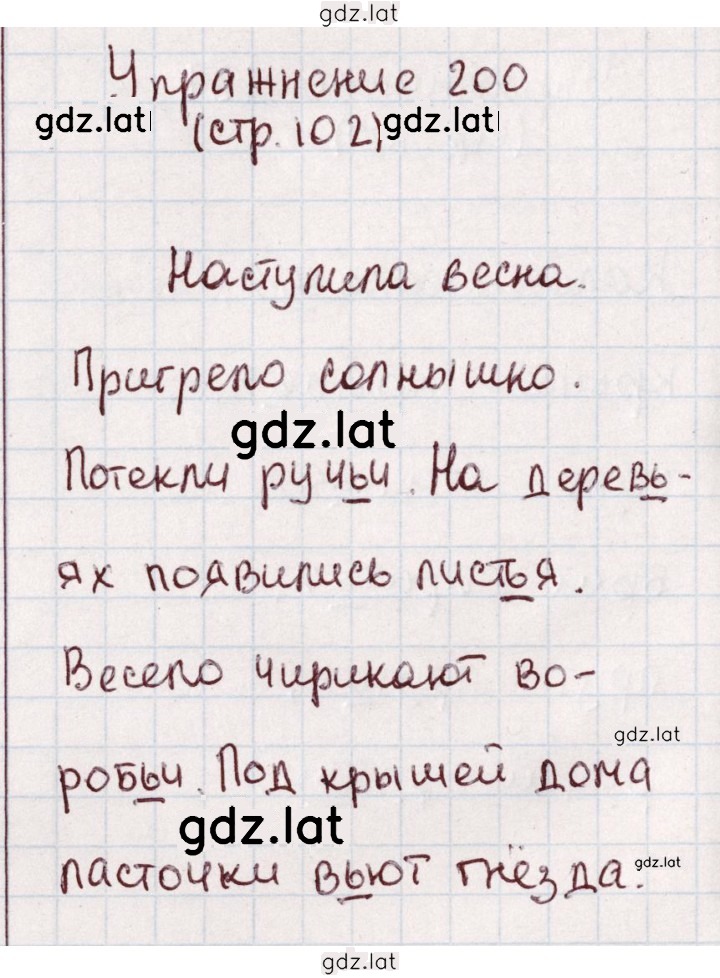 gdz.lat
Упражнение 200
gdz.lat (стр. 102) gdz.lat
Наступила весна.
Пригрело солнышко.
gdz.lat
Потекли ручьи. На деревь-
ях появились листья.
Весело чирикают во-
gdz.lat
робьи. Под крышей дома
gdz.lat
ласточки вьют гнёзда.
gdz.lat
gdz.lat